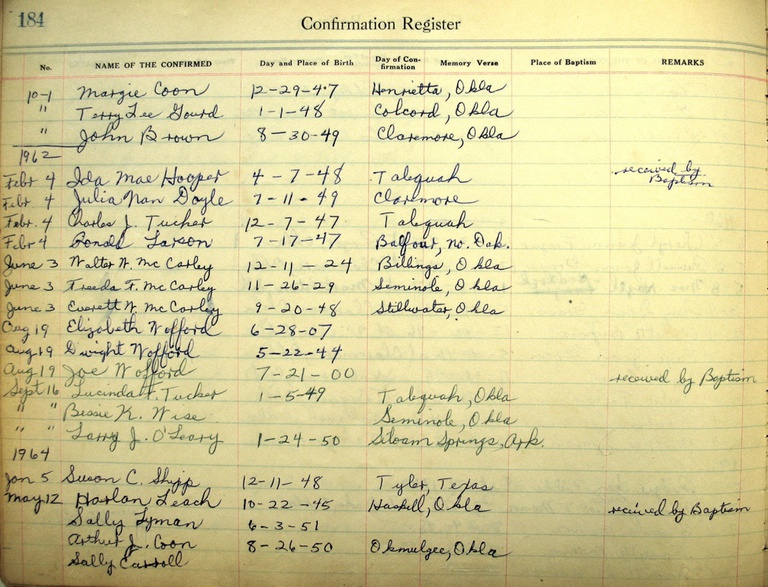 184
Confirmation Register
No. NAME OF THE CONFIRMED Day and Place of Birth Day of Con-firmation Memory Verse Place of Baptism REMARKS
10-1 Margie Coon 12-29-47 Henrietta, Okla
" Terry Lee Gourd 1-1-48 Colcord, Okla
" John Brown 8-30-49 Claremore, Okla
1962
Febr 4 Ida Mae Hooper 4-7-48 Talequah received by Baptism
Febr 4 Julia Nan Doyle 7-11-49 Claremore
Febr. 4 Charles J. Tucher 12-7-47 Talequah
Febr 4 Ronald Larson 7-17-47 Balfour, No. Dak.
June 3 Walter W. McCarley 12-11-24 Billings, Okla
June 3 Freeda F. McCarley 11-26-29 Seminole, Okla
June 3 Everett W. McCarley 9-20-48 Stillwater, Okla
Aug 19 Elizabeth Wofford 6-28-07
Aug 19 Dwight Wofford 5-22-44
Aug 19 Joe Wofford 7-21-00 received by Baptism
Sept 16 Lucinda F. Tucker 1-5-49 Talequah, Okla
" " Bessie K. Wise Seminole, Okla
" " Larry J. O'Leary 1-24-50 Siloam Springs, Ark.
1964
Jan 5 Susan C. Shipp 12-11-48 Tyler, Texas
May 12 Harlan Leach 10-22-45 Haskell, Okla received by Baptism
Sally Lyman 6-3-51
Arthur J. Coon 8-26-50 Okmulgee, Okla
Sally Carroll